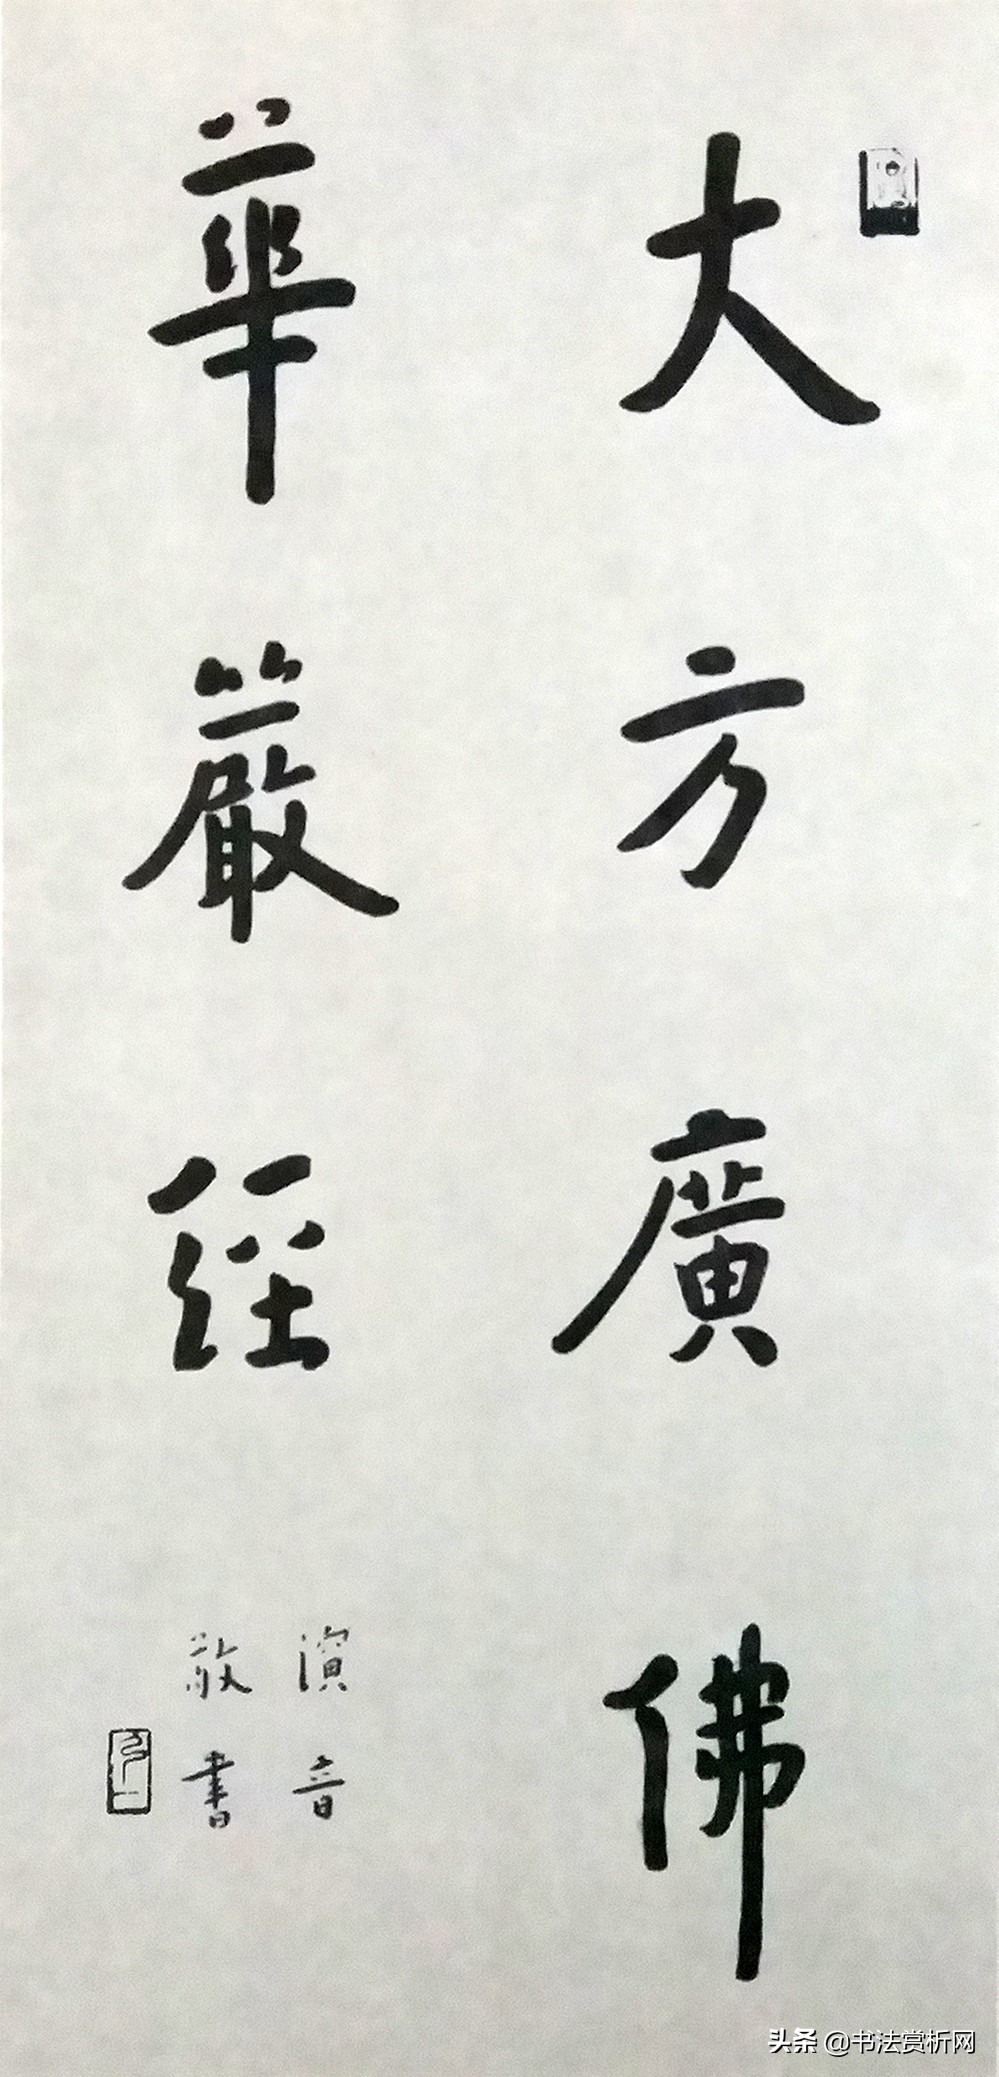 大方廣佛
華嚴經
演音
敬書
弘一
头条 @书法赏析网